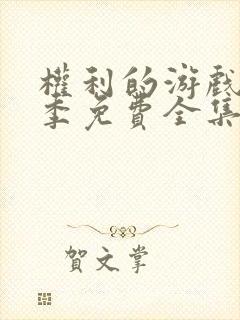 權利的游戲
季免費全集
賀文掌